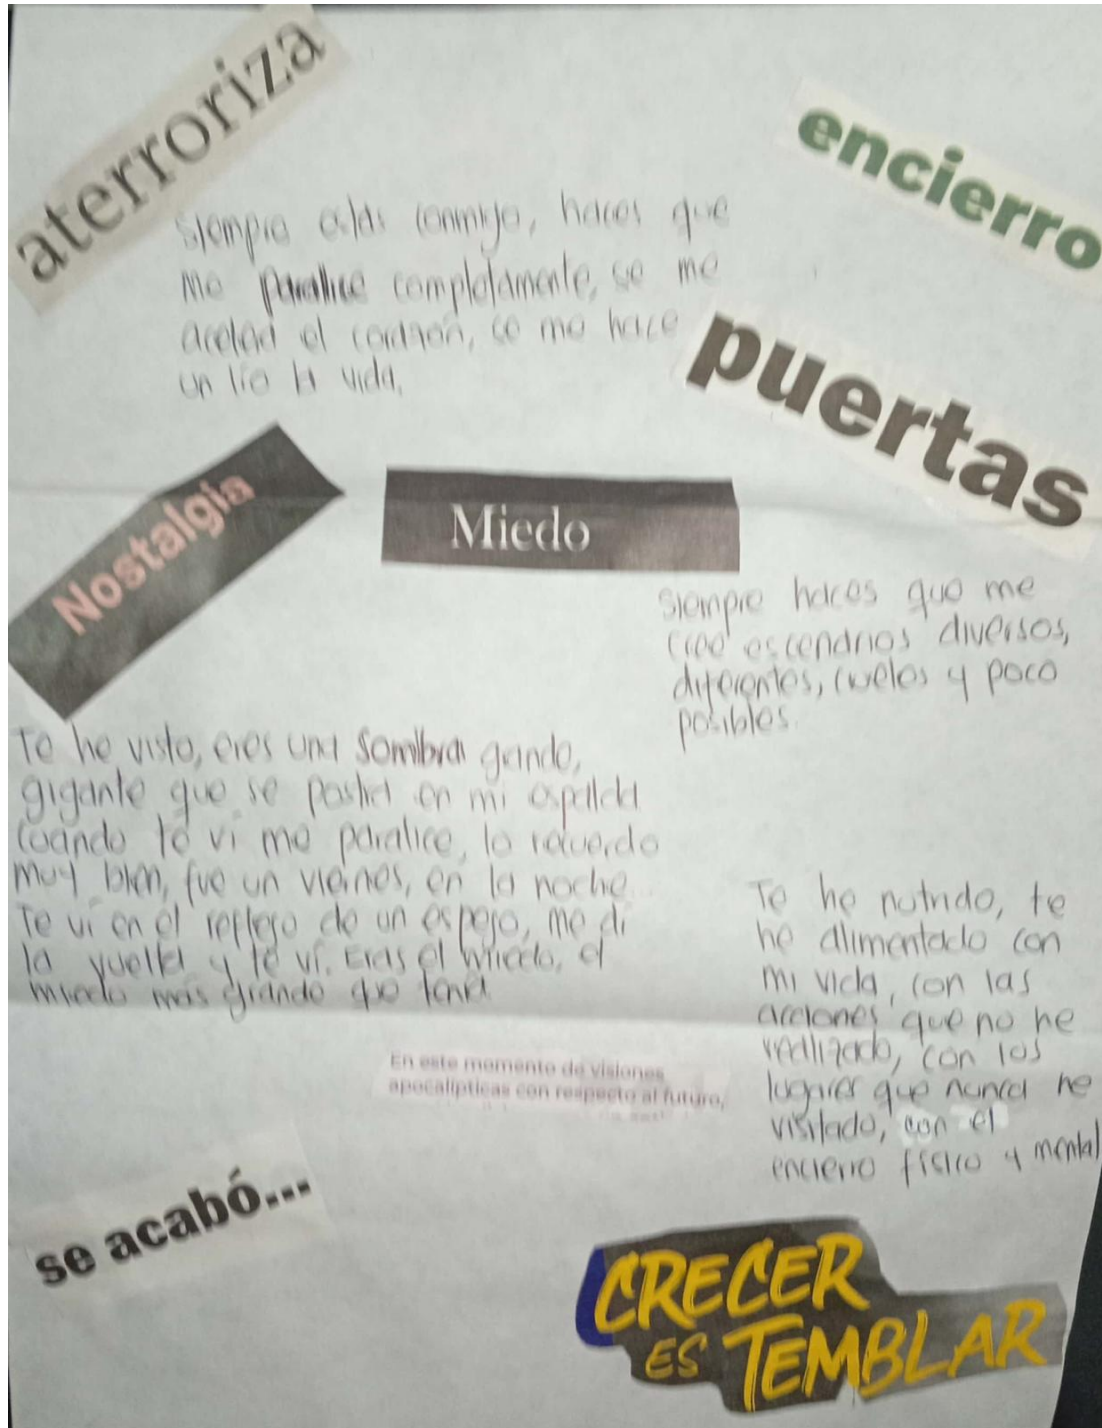 aterroriza
encierro
Siempre estás conmigo, haces que
me paralice completamente, se me
acelera el corazón, se me hace
un lío la vida.
puertas
Nostalgia
Miedo
Siempre haces que me
creé escenarios diversos,
diferentes, crueles y poco
posibles.
Te he visto, eres una sombra grande,
gigante que se posa en mi espalda
cuando te vi me paralice, lo recuerdo
muy bien, fue un viernes, en la noche...
Te vi en el reflejo de un espejo, me di
la vuelta y te ví. Eras el miedo, el
miedo más grande que tenía
Te he nutrido, te
he alimentado con
mi vida, con las
acciones que no he
realizado, con los
lugares que nunca he
visitado, con el
encierro físico y mental
En este momento de visiones
apocalípticas con respecto al futuro,
se acabó...
CRECER
ES TEMBLAR